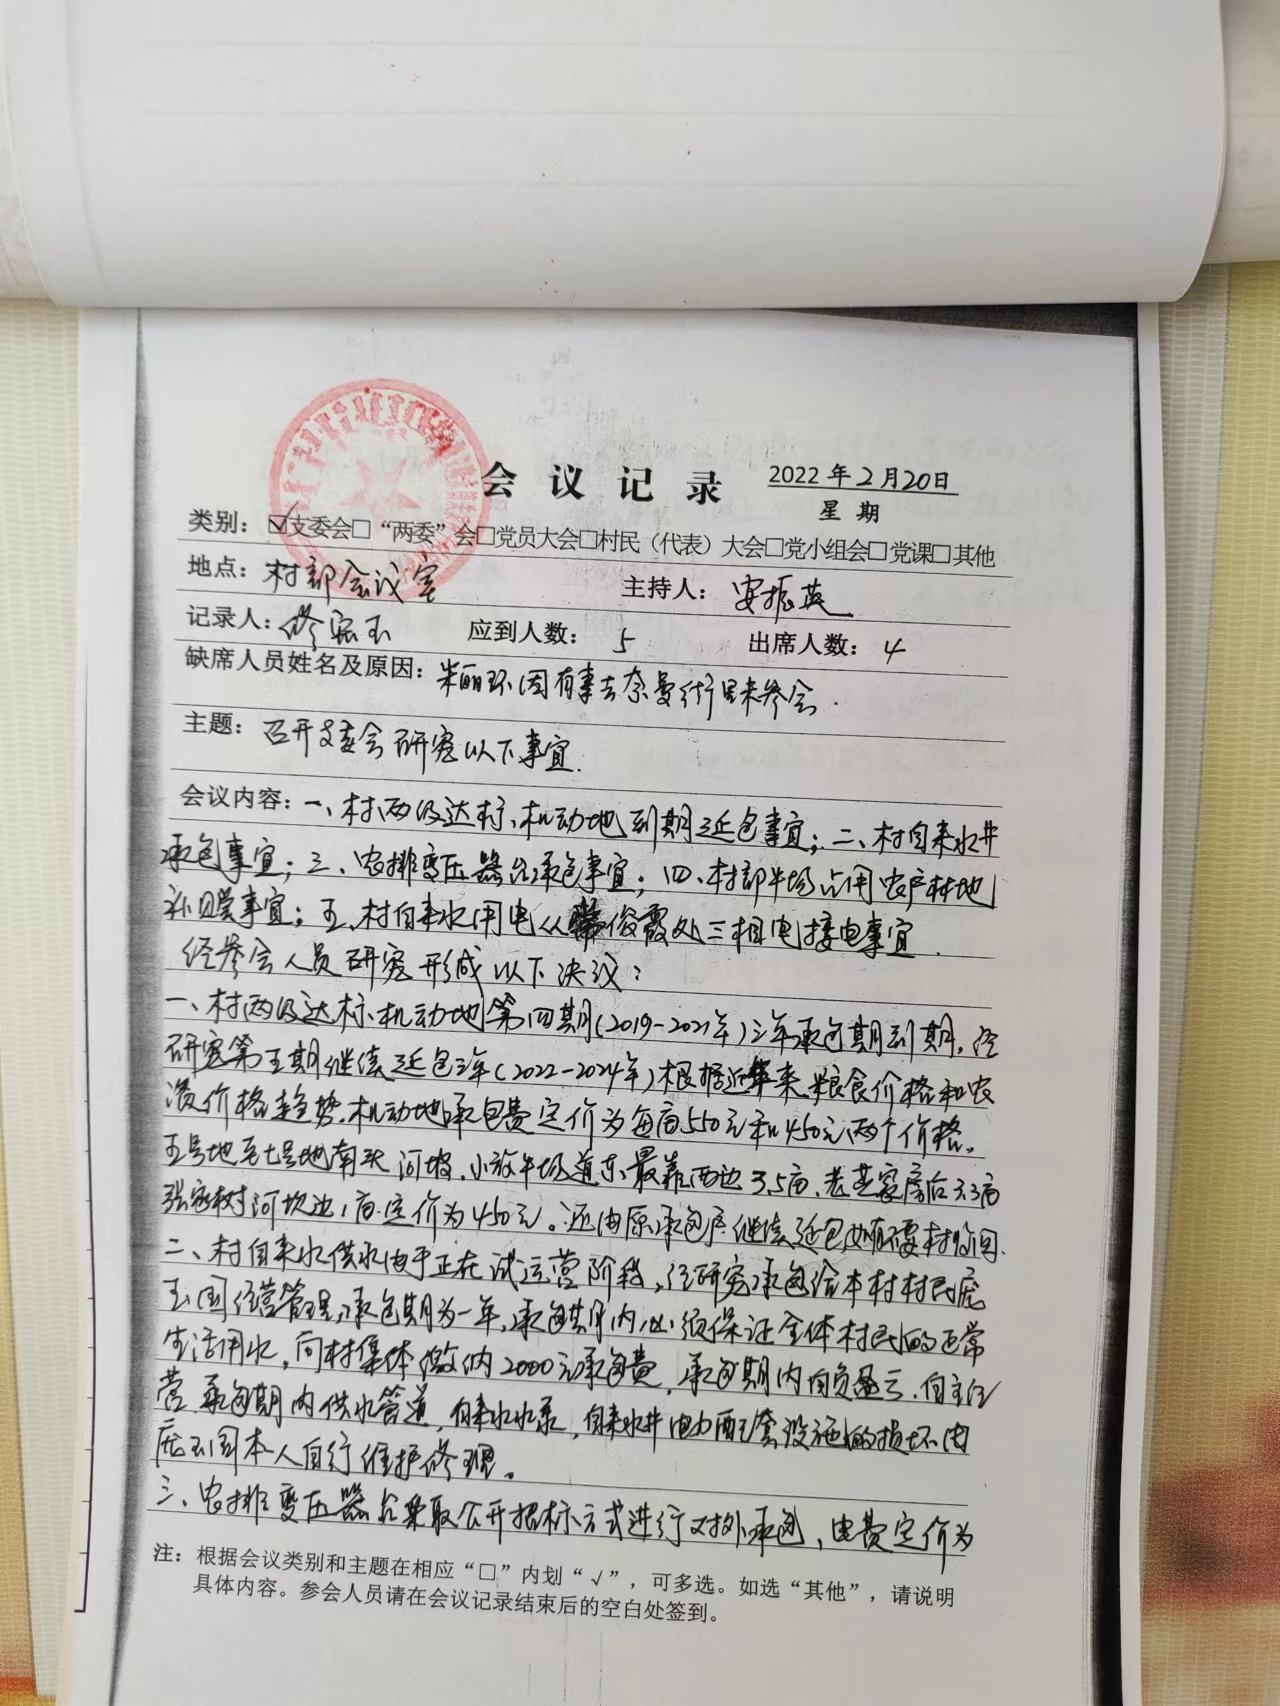 会议记录 2022年2月20日
星期
类别：☑支委会□“两委”会□党员大会□村民（代表）大会□党小组会□党课□其他
地点：村部会议室 主持人：安振英
记录人：修宏玉 应到人数：5 出席人数：4
缺席人员姓名及原因：米丽环因有事去奈曼街里未参会.
主题：召开支委会研究以下事宜.
会议内容：一、村两级达标、机动地到期延包事宜；二、村自来水井
承包事宜；三、农排变压器台承包事宜；四、村部牛场占用农户林地
补贴事宜；五、村自来水用电从俊霞处三相电接电事宜.
经参会人员研究形成以下决议：
一、村两级达标、机动地第四期(2019-2021年)三年承包期到期，经
研究第五期继续延包三年(2022-2024年)根据近年来粮食价格和农
资价格趋势，机动地承包费定价为每亩550元和450元两个价格。
五号地至七号地南头河坡，小放牛场道东最靠西边3.5亩，老芒家房后3.3亩
张家树河坎边1亩.定价为450元。还由原承包户继续延包如有不要村收回.
二、村自来水供水由于正在试运营阶段，经研究承包给本村村民庞
玉国经营管理，承包期为一年，承包期内必须保证全体村民的正常
生活用水，向村集体缴纳2000元承包费，承包期内自负盈亏.自主经
营.承包期内供水管道，自来水水泵，自来水井电力配套设施的损坏由
庞玉国本人自行维护修理。
三、农排变压器台采取公开招标方式进行对外承包，电费定价为
注：根据会议类别和主题在相应“□”内划“√”，可多选。如选“其他”，请说明
具体内容。参会人员请在会议记录结束后的空白处签到。